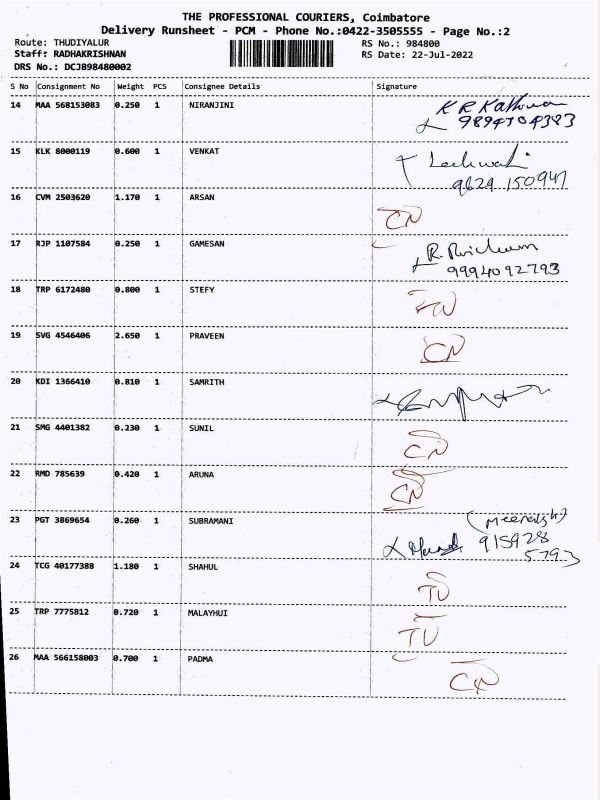 THE PROFESSIONAL COURIERS, Coimbatore
Delivery Runsheet - PCM - Phone No.:0422-3505555 - Page No.:2
Route: THUDIYALUR RS No.: 984800
Staff: RADHAKRISHNAN RS Date: 22-Jul-2022
DRS No.: DCJB98480002
S No Consignment No Weight PCS Consignee Details Signature
14 MAA 568153083 0.250 1 NIRANJINI
9894704383
15 KLK 8000119 0.600 1 VENKAT
9629 150947
16 CVM 2503620 1.170 1 ARSAN CN
17 RJP 1107584 0.250 1 GAMESAN
9994092793
18 TRP 6172480 0.800 1 STEFY TU
19 SVG 4546406 2.650 1 PRAVEEN CN
20 KDI 1366410 0.810 1 SAMRITH
21 SMG 4401382 0.230 1 SUNIL CN
22 RMD 785639 0.420 1 ARUNA CN
23 PGT 3869654 0.260 1 SUBRAMANI
915928
5793
24 TCG 40177388 1.180 1 SHAHUL TU
25 TRP 7775812 0.720 1 MALAYHUI TU
26 MAA 566158003 0.700 1 PADMA CN